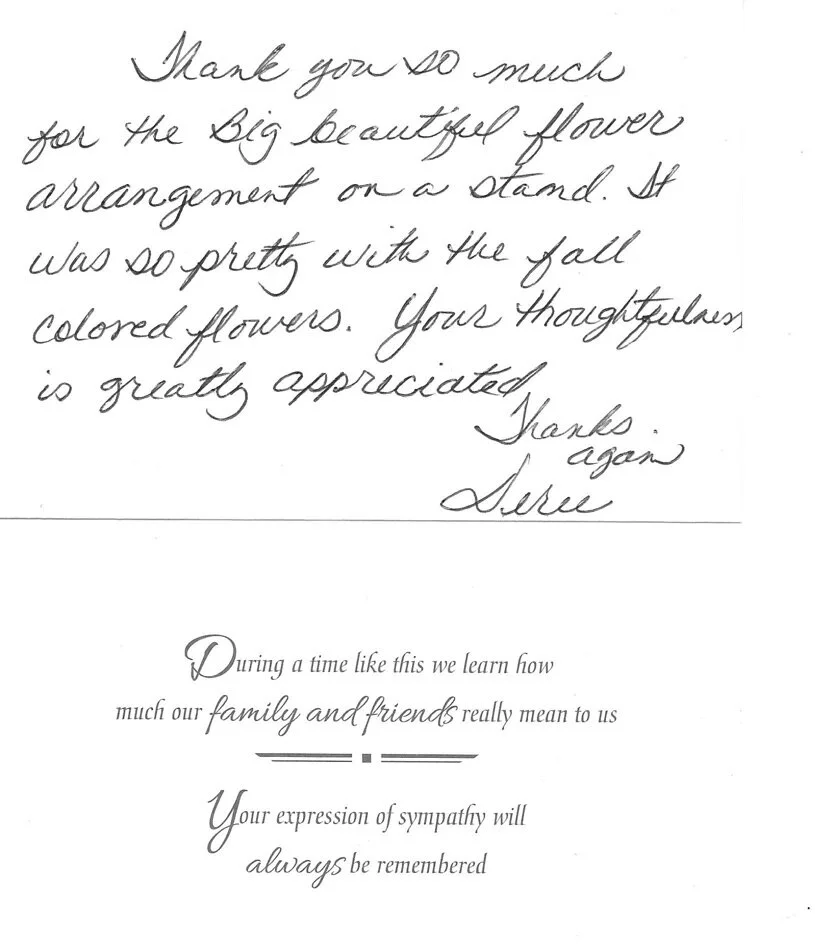 Thank you so much
for the Big beautiful flower
arrangement on a stand. It
was so pretty with the fall
colored flowers. Your thoughtfulness
is greatly appreciated
Thanks
again
During a time like this we learn how
much our family and friends really mean to us
Your expression of sympathy will
always be remembered